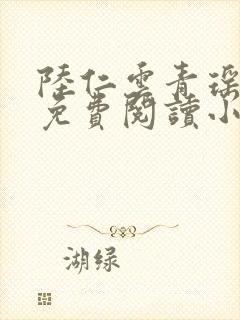 陸仁雲青瑶
免費閱讀小
湖绿